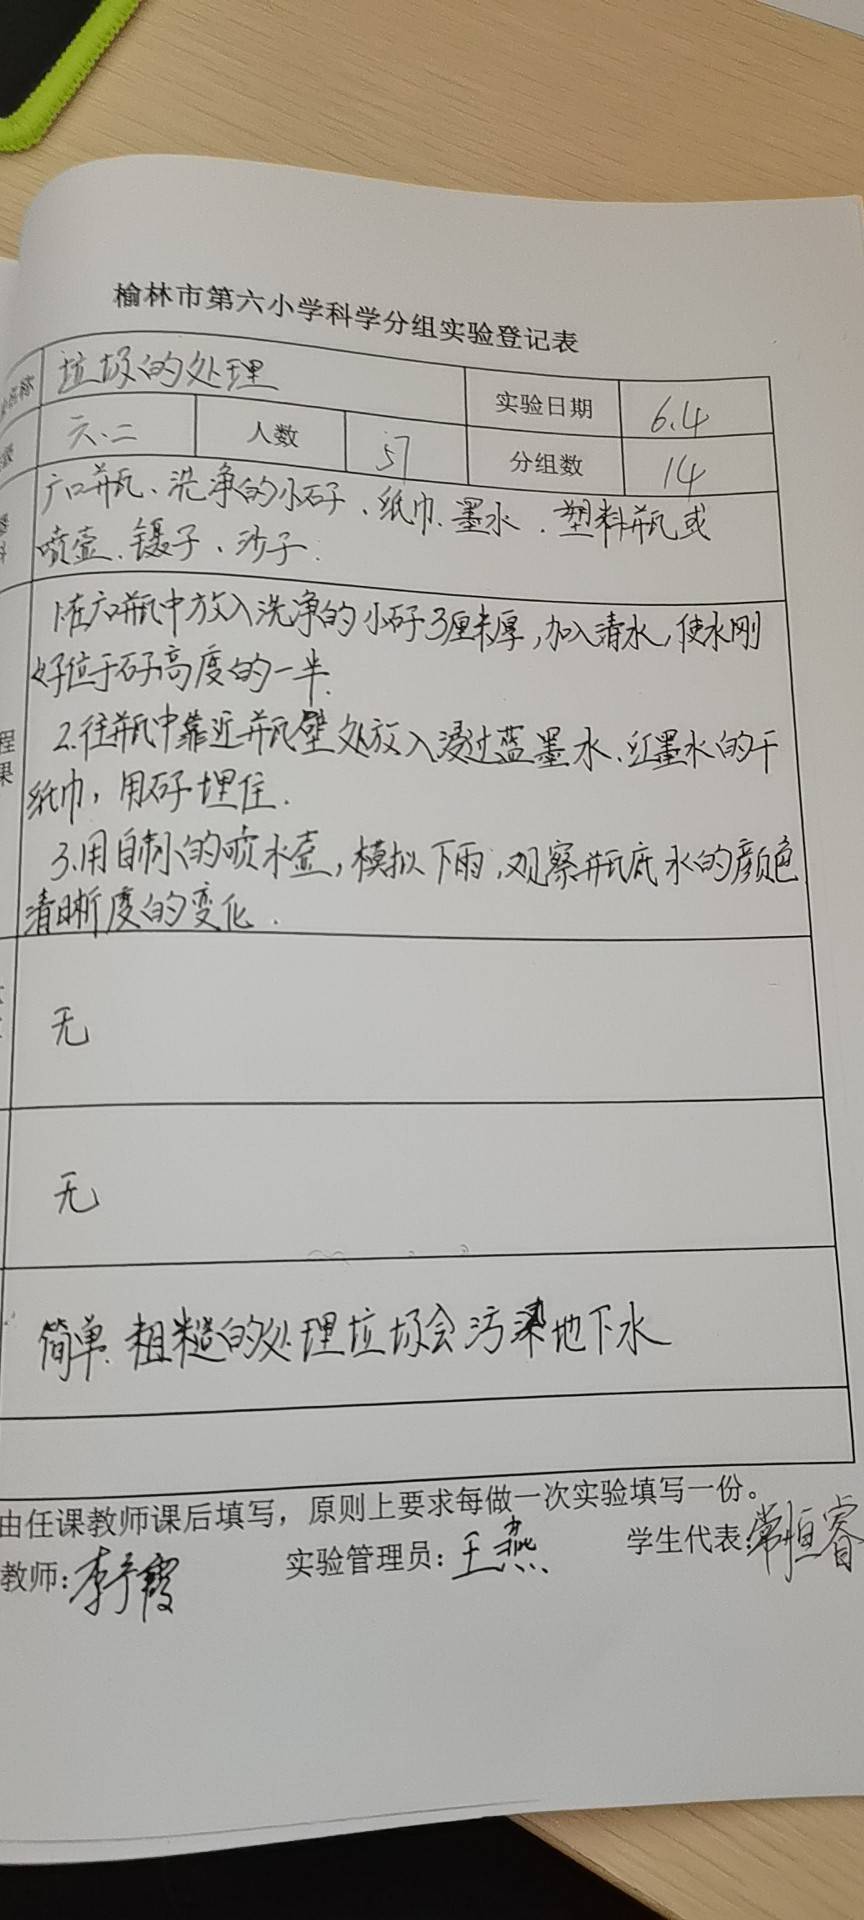 榆林市第六小学科学分组实验登记表
垃圾的处理 实验日期 6.4
六.二 人数 57 分组数 14
广口瓶、洗净的小石子、纸巾、墨水、塑料瓶或
喷壶、镊子、沙子.
1.在广口瓶中放入洗净的小石子3厘米厚,加入清水,使水刚
好位于石子高度的一半.
2.往瓶中靠近瓶壁处放入浸过蓝墨水、红墨水的干
纸巾,用石子埋住.
3.用自制的喷水壶,模拟下雨,观察瓶底水的颜色
清晰度的变化.
程
果
无
无
简单.粗糙的处理垃圾会污染地下水
由任课教师课后填写，原则上要求每做一次实验填写一份。
教师: 实验管理员: 王燕 学生代表: 常恒睿